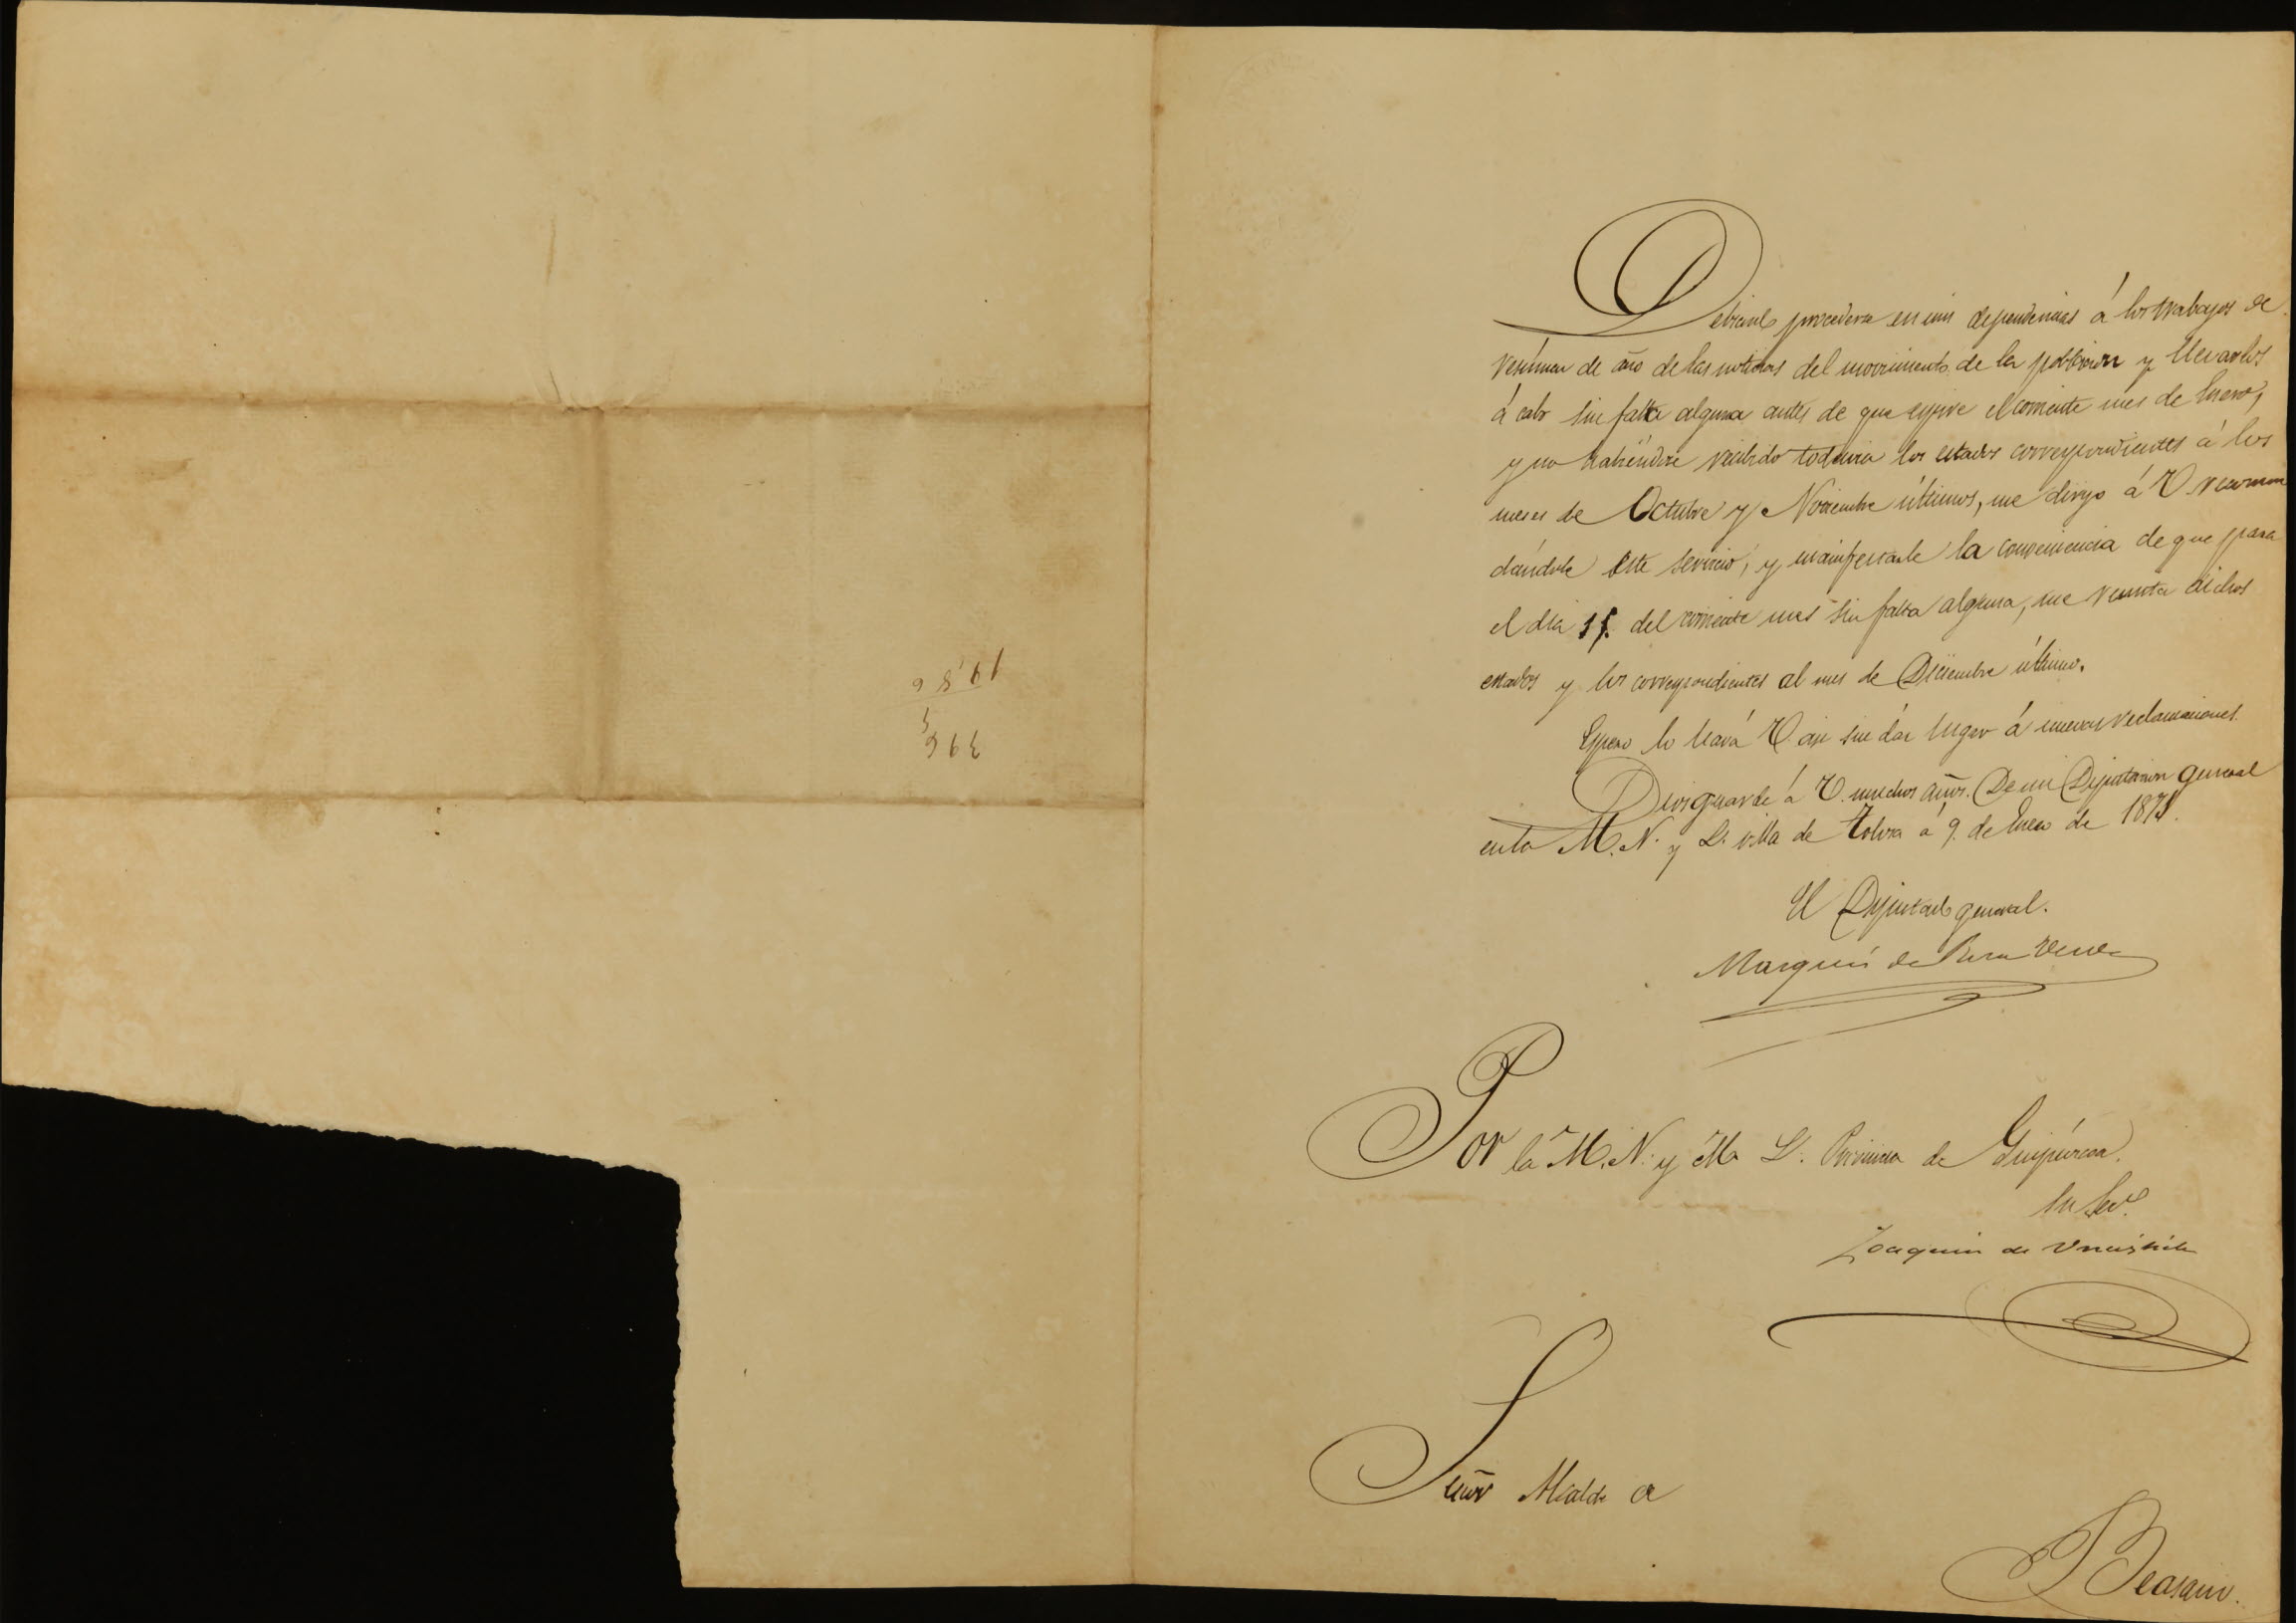 Debiendo procederse en mis dependencias á los trabajos de
resúmen de año de las noticias del movimiento de la poblacion y llevarlos
á cabo sin falta alguna antes de que espire el corriente mes de Enero,
y no habiéndose recibido todavia los estados correspondientes á los
meses de Octubre y Noviembre últimos, me dirijo á V. recomen
dándole este servicio, y manifestarle la conveniencia de que para
el dia 15. del corriente mes sin falta alguna, me remita dichos
estados y los correspondientes al mes de Diciembre último.
Espero lo hará V. asi sin dar lugar á nuevas reclamaciones.
Dios guarde á V. muchos años. De mi Diputacion general
en la M. N. y L. villa de Tolosa á 9. de Enero de 1871.
El Diputado general.
Marqués de Roca Verde
Por la M. N. y M. L. Provincia de Guipúzcoa.
su Sec.º
Joaquin de Urreiztieta
Señor Alcalde de
Beasain.
1986
5
396